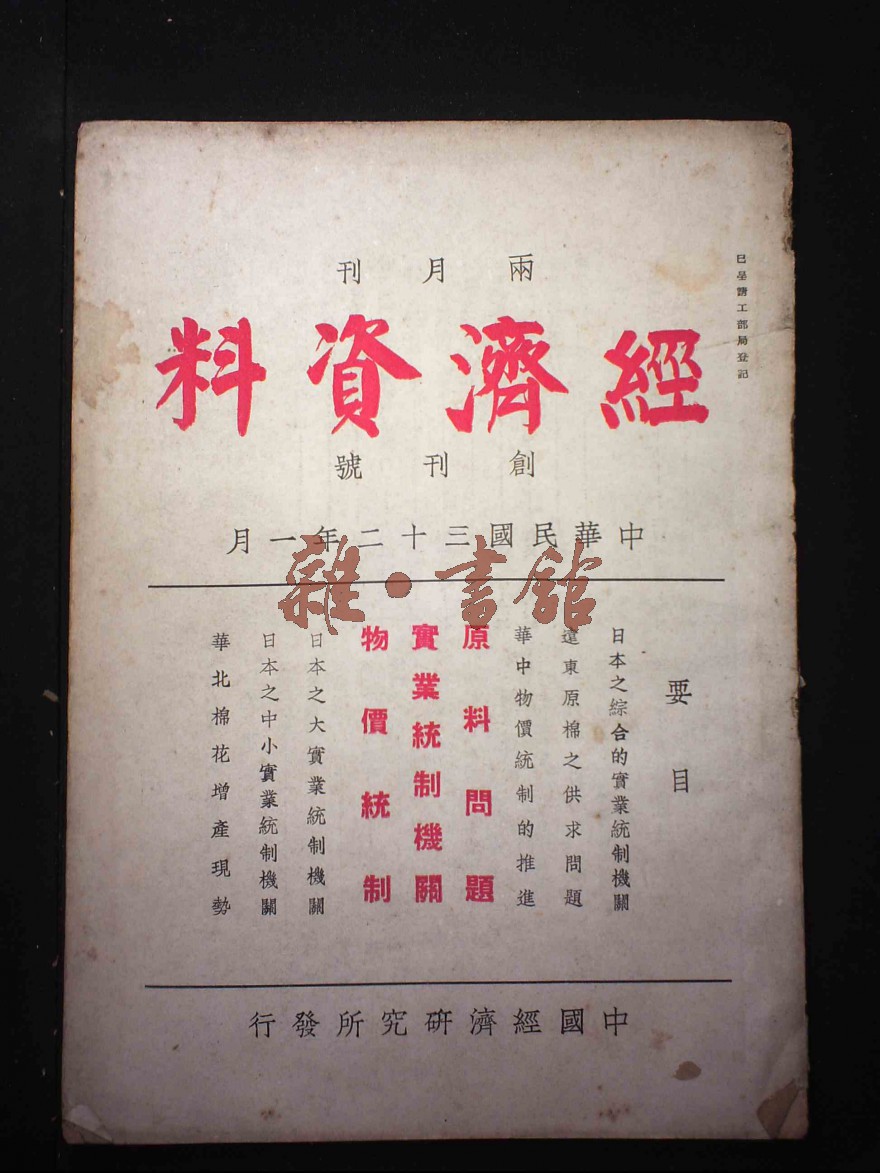 已呈請工部局登記
兩月刊
經濟資料
創刊號
中華民國三十二年一月
雜·書館
要目
日本之綜合的實業統制機關
遠東原棉之供求問題
華中物價統制的推進
原料問題
實業統制機關
物價統制
日本之大實業統制機關
日本之中小實業統制機關
華北棉花增產現勢
中國經濟研究所發行